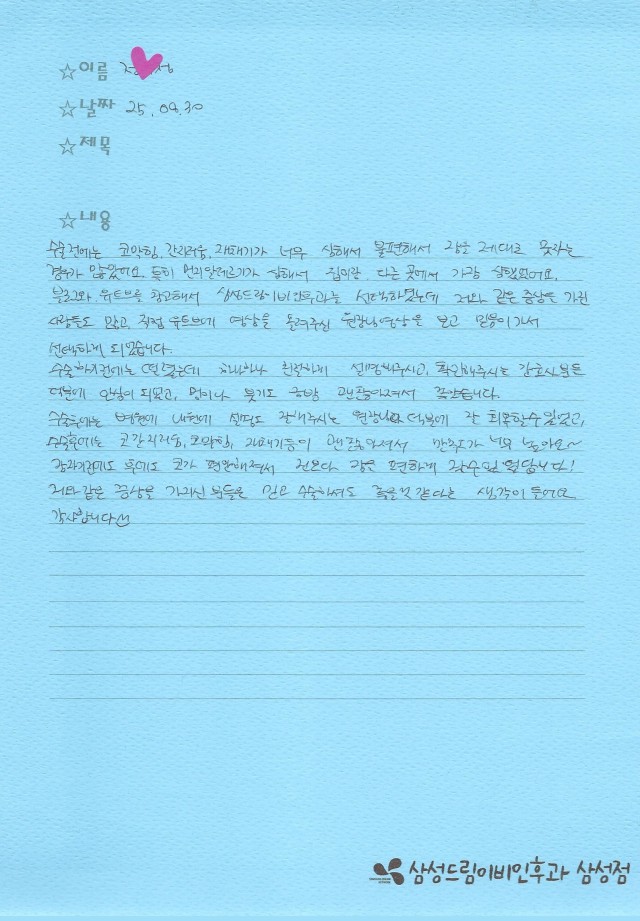 ☆이름 전 성
☆날짜 25.09.30
☆제목
☆내용
수술전에는 코막힘, 간지러움, 재채기가 너무 심해서 불편해서 잠을 제대로 못자는
경우가 많았어요. 특히 먼지알레르기가 심해서 집이랑 다른 곳에서 가장 심했었어요.
블로그와 유튜브를 참고해서 삼성드림이비인후과를 선택하였는데 저와 같은 증상을 가진
사람들도 많고, 직접 유튜브에 영상을 올려주신 원장님영상을 보고 믿음이가서
선택하게 되었습니다.
수술하기전에는 떨렸는데 하나하나 친절하게 설명해주시고, 확인해주시는 간호사분들
덕분에 안심이 되었고, 멍이나 붓기도 금방 괜찮아져서 좋았습니다.
수술후에는 병원에 내원에 설명도 잘해주시는 원장님 덕분에 잘 회복할수 있었고,
수술후에는 코간지러움, 코막힘, 재채기등이 괜찮아져서 만족도가 너무 높아요~
잠자기전에도 후에도 코가 편안해져서 전보다 잠을 편하게 잘수 있답니다!
저와같은 증상을 가지신 분들은 믿고 수술하셔도 좋을것 같다는 생각이 들어요
감사합니다
삼성드림이비인후과 삼성점